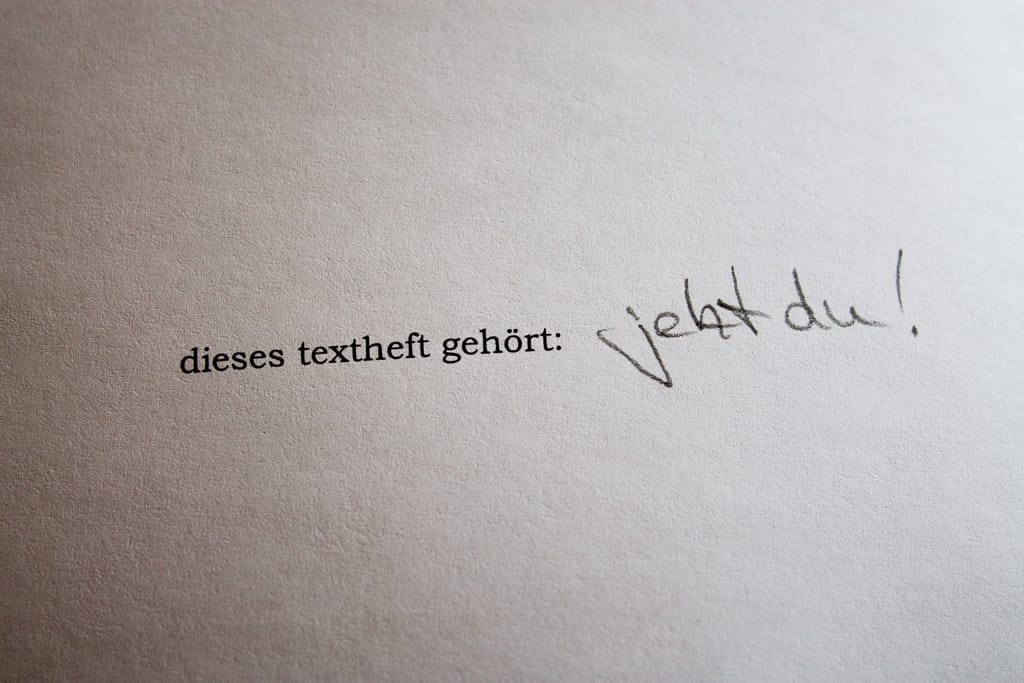 dieses textheft gehört: jetzt du!